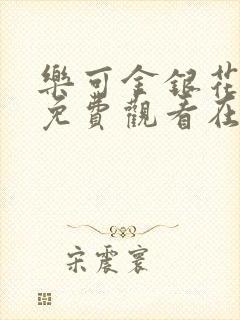 樂可金銀花
免費觀看在
宋震寰